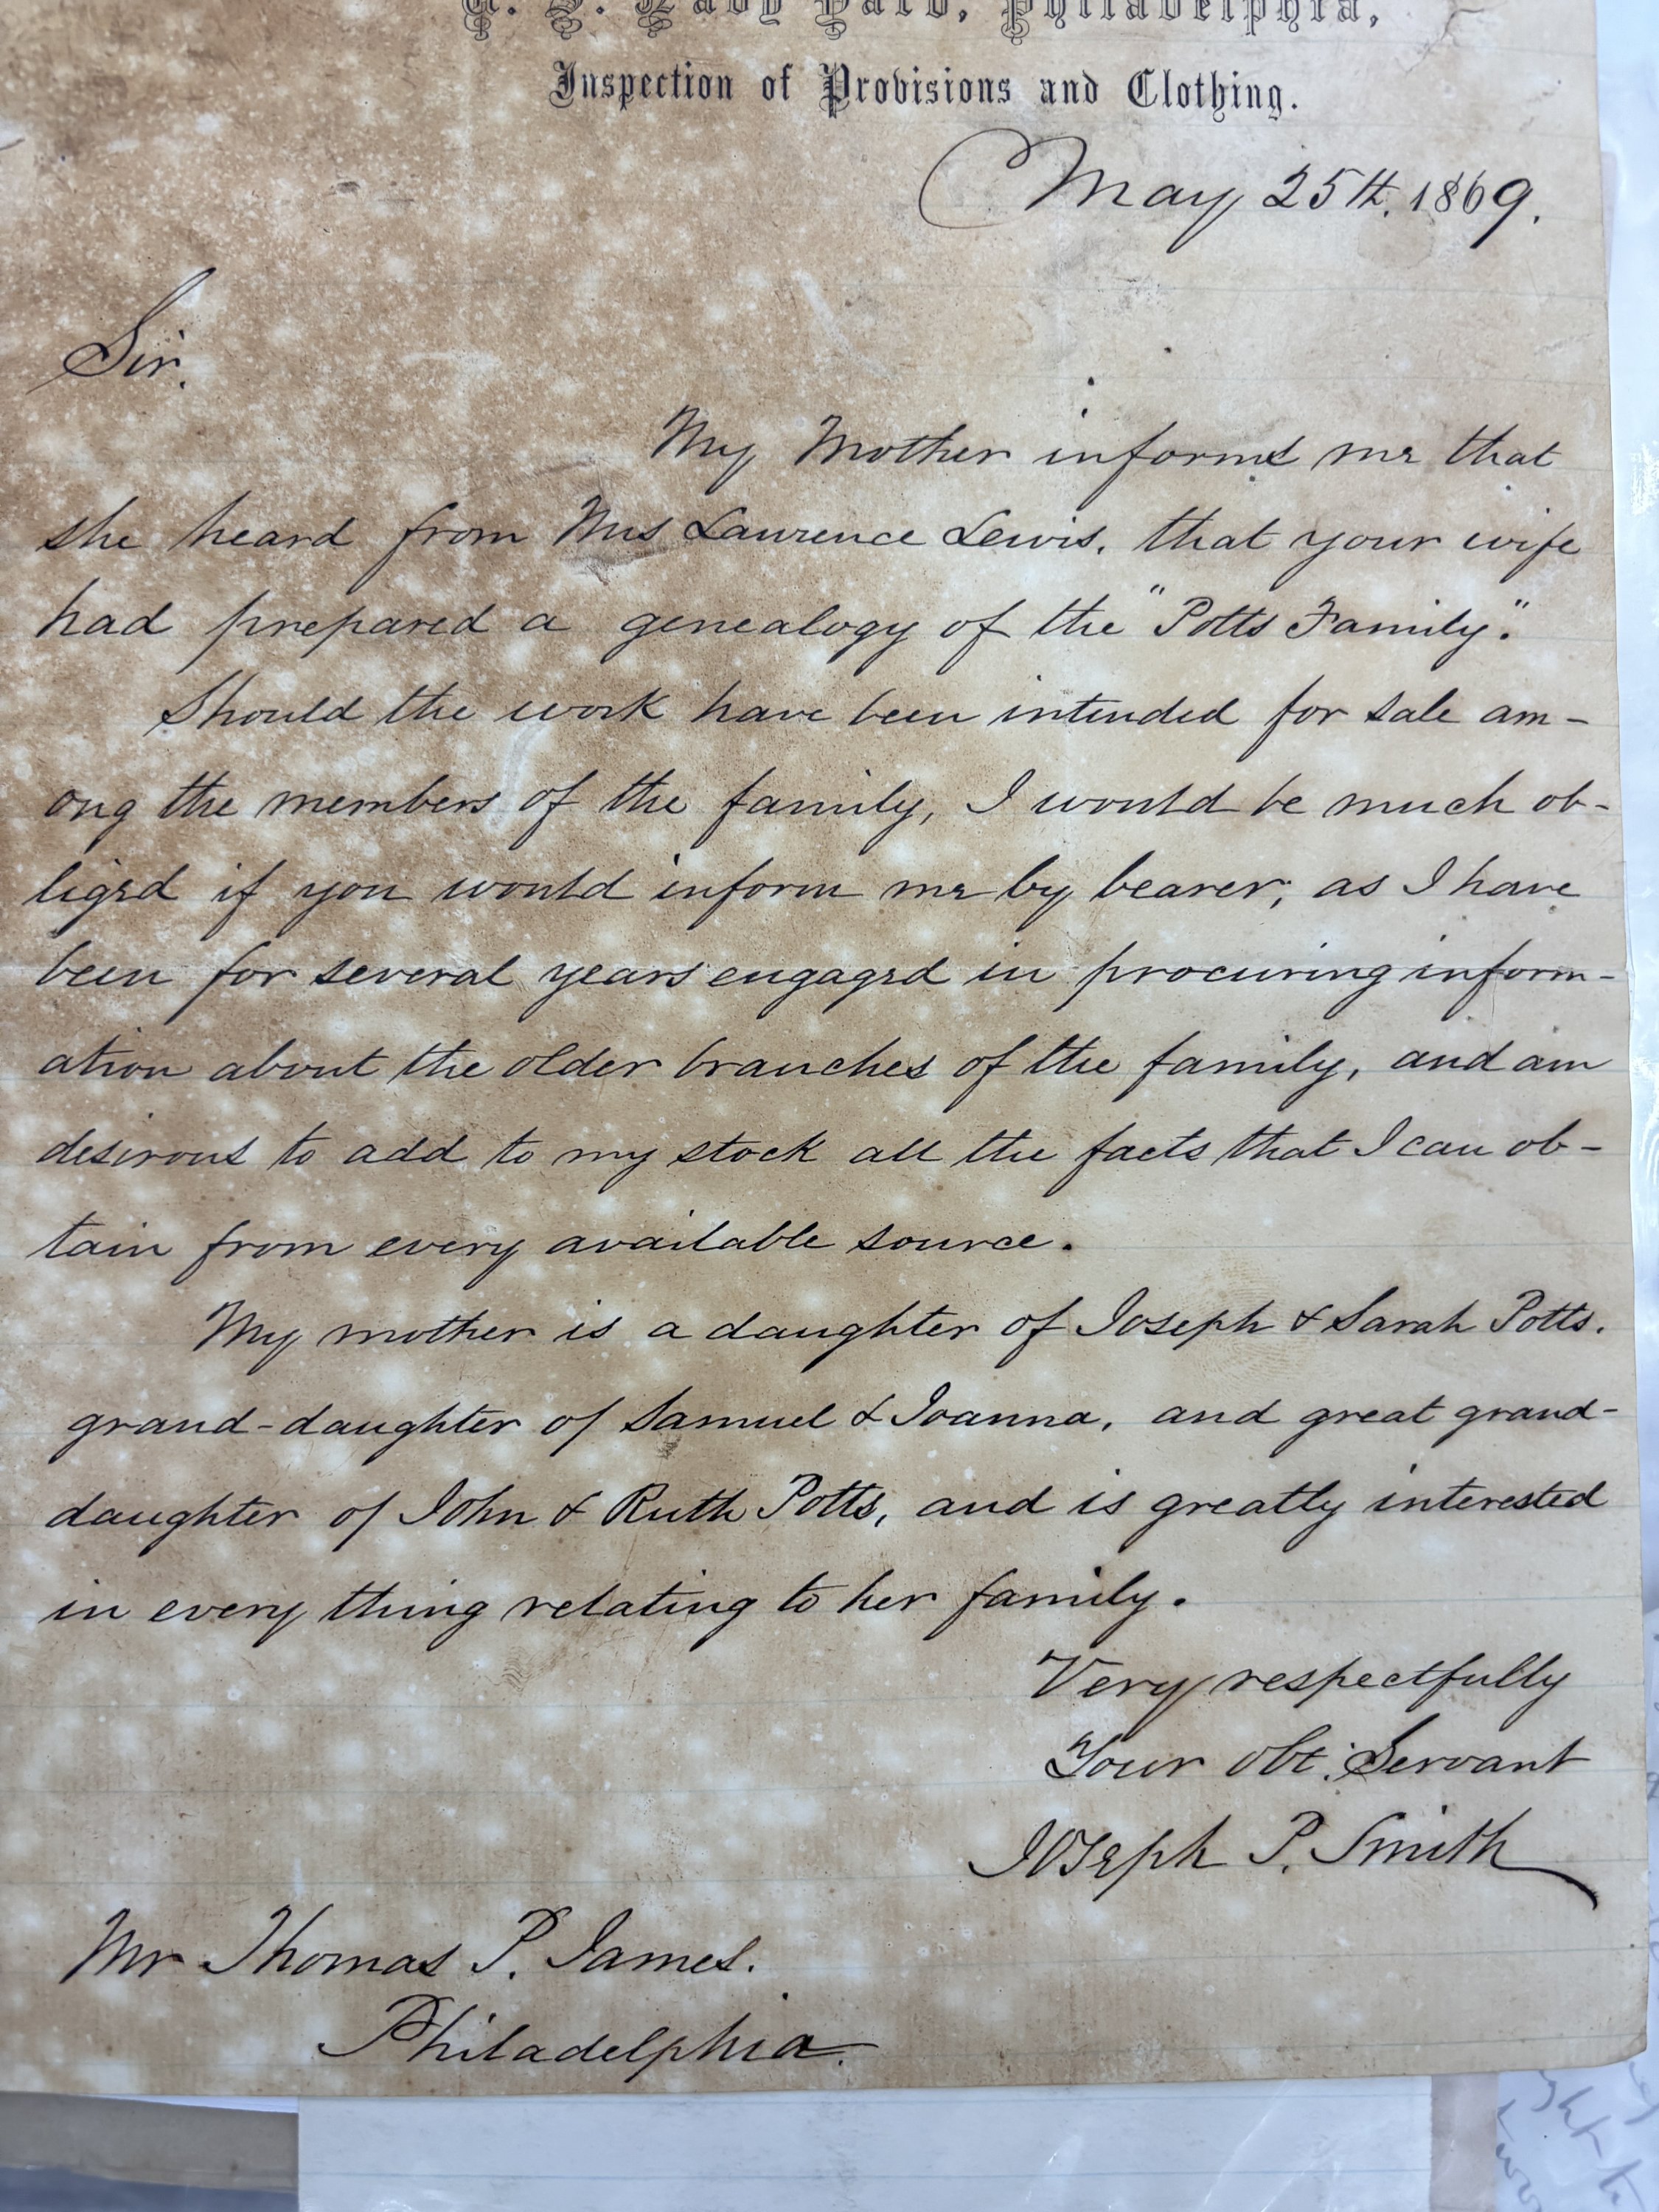 U. S. Navy Yard, Philadelphia,
Inspection of Provisions and Clothing.
May 25th. 1869.
Sir.
My Mother informs me that
she heard from Mrs Lawrence Lewis, that your wife
had prepared a genealogy of the "Potts Family."
Should the work have been intended for sale am-
ong the members of the family, I would be much ob-
liged if you would inform me by bearer; as I have
been for several years engaged in procuring inform-
ation about the older branches of the family, and am
desirous to add to my stock all the facts that I can ob-
tain from every available source.
My mother is a daughter of Joseph & Sarah Potts.
grand-daughter of Samuel & Joanna, and great grand-
daughter of John & Ruth Potts, and is greatly interested
in every thing relating to her family.
Very respectfully
Your obt. Servant
Joseph P. Smith
Mr Thomas P. James.
Philadelphia.